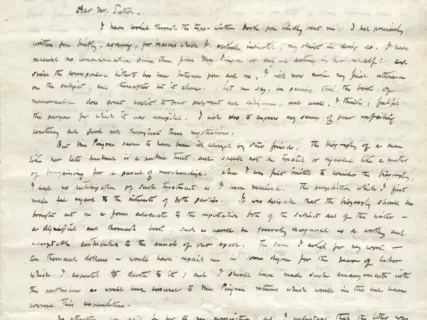 Dear Mr. 
I have looked through the type-written book you kindly sent me. I had previously
written you briefly, assigning, for reasons which I partially indicated, my object in doing so. I have
received no communication since then from Mrs. or any one acting in her behalf: and
since the correspondence hitherto has been between you and me, I will now make my final utterance
on the subject, and thereafter let it alone. Let me say, in passing, that the book of
memoranda does great credit to your judgment and diligence, and would, I think, fulfil
the purpose for which it was compiled. I wish also to express my sense of your unfailing
courtesy and good will throughout these negotiations.
But Mrs. seems to have been ill advised by other friends. The biography of a man
like her late husband is a public trust, and should not be treated or regarded like a matter
of bargaining for a parcel of merchandise. When I was first invited to consider the biography,
I had no anticipation of such treatment as I have received. The proposition which I first
made had regard to the interests of both parties. I was desirous that the biography should be
brought out in a form adequate to the reputation both of the subject and of the writer —
a dignified and thorough book, such as would be generally recognized as a worthy and
acceptable contribution to the annals of our epoch. The sum I asked for my work —
ten thousand dollars — would have repaid me in some degree for the season of labor
which I expected to devote to it; and I should have made such arrangements with
the publishers as would have assured to Mrs. returns which would in the end have
covered this expenditure.